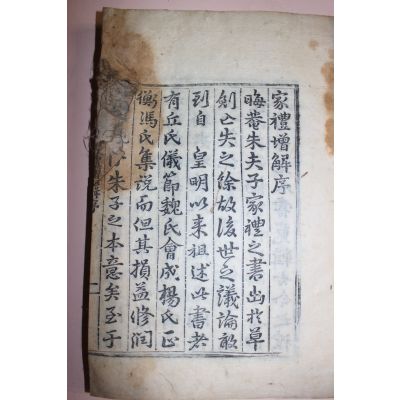 家禮增解序
晦菴朱夫子家禮之書出於草
創亡失之徐故後世之議論敢
到自 皇明以來祖述此書者
有丘氏儀節魏氏會成楊氏正
衡馮氏集說而但其損益修潤
朱子之本意矣至于